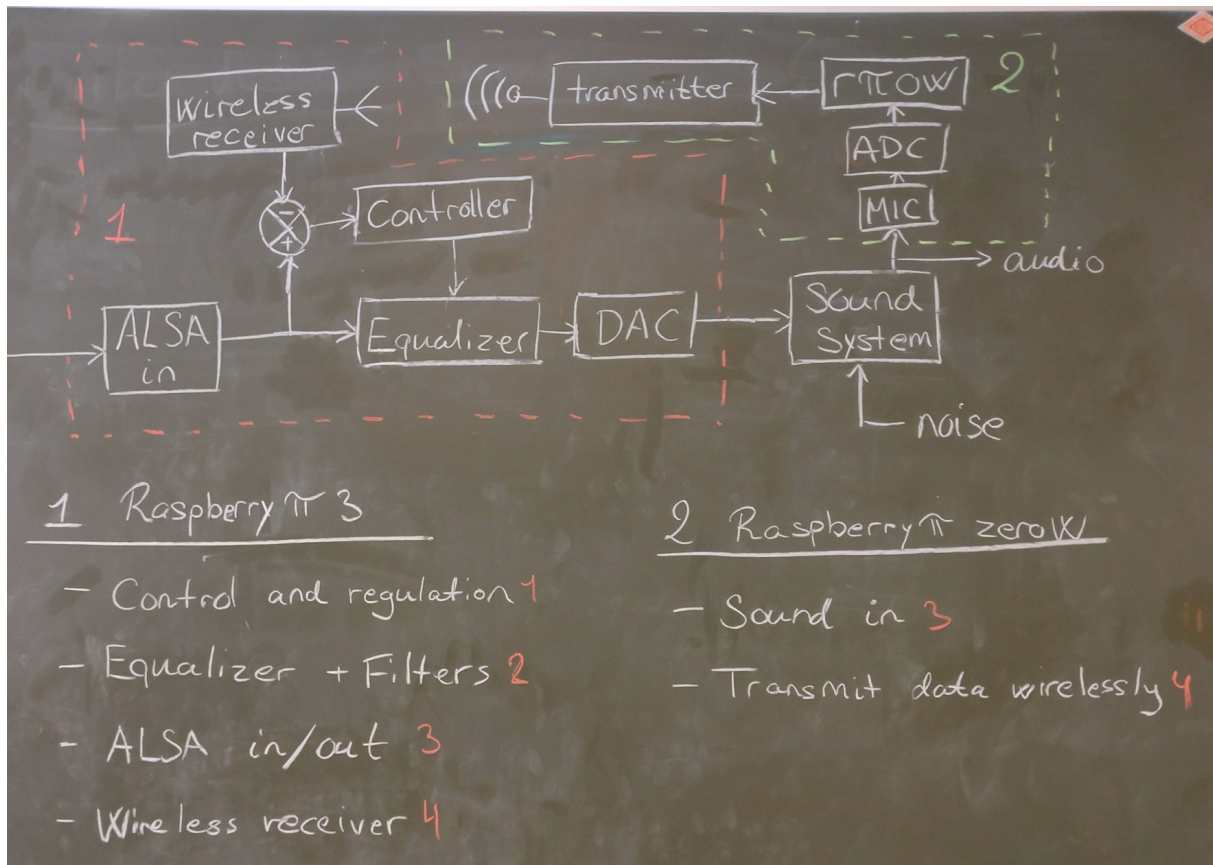 2
wireless
receiver
transmitter
rπOW
ADC
MIC
1
-
+
Controller
audio
ALSA
in
Equalizer
DAC
Sound
System
noise
1 Raspberry π 3
- Control and regulation 1
- Equalizer + Filters 2
- ALSA in/out 3
- Wireless receiver 4
2 Raspberry π zeroW
- Sound in 3
- Transmit data wirelessly 4